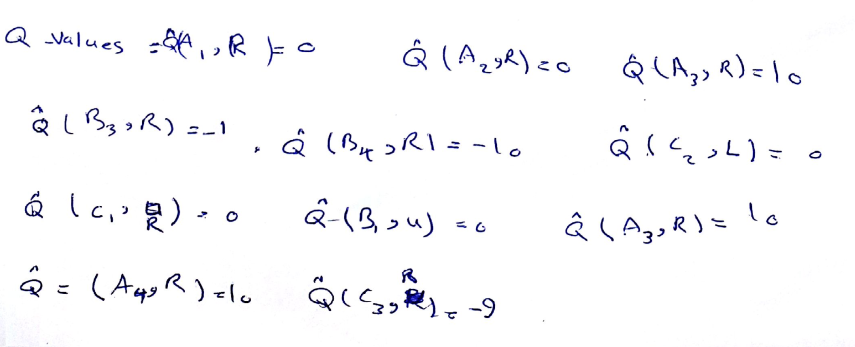 Q -Values = Q̂(A₁, R) = 0 Q̂ (A₂, R) = 0 Q̂ (A₃, R) = 10
Q̂ (B₃, R) = -1 , Q̂ (B₄, R) = -10 Q̂ (C₂, L) = 0
Q̂ (C₁, R) = 0 Q̂ (B₁, u) = 0 Q̂ (A₃, R) = 10
Q̂ = (A₄, R) = 10 Q̂ (C₃, R) = -9